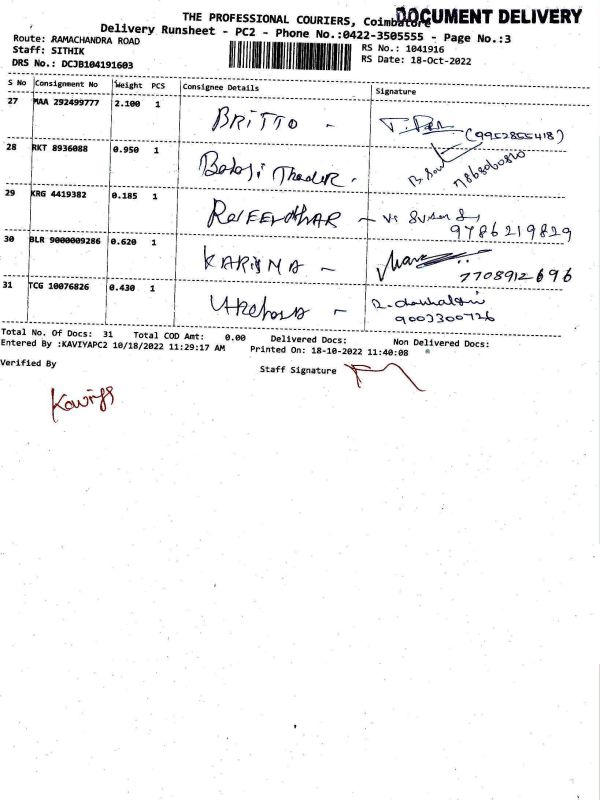 DOCUMENT DELIVERY
THE PROFESSIONAL COURIERS, Coimbatore
Delivery Runsheet - PC2 - Phone No.:0422-3505555 - Page No.:3
Route: RAMACHANDRA ROAD
RS No.: 1041916
Staff: SITHIK
RS Date: 18-Oct-2022
DRS No.: DCJB104191603
S No Consignment No Weight PCS Consignee Details Signature
27 MAA 292499777 2.100 1 BRITTO - (9952855418)
28 RKT 8936088 0.950 1 Balaji -
29 KRG 4419382 0.185 1 - 9786219829
30 BLR 9000009286 0.620 1 KARISMA - 7708912696
31 TCG 10076826 0.430 1 - 9003300726
Total No. Of Docs: 31 Total COD Amt: 0.00 Delivered Docs: Non Delivered Docs:
Entered By :KAVIYAPC2 10/18/2022 11:29:17 AM Printed On: 18-10-2022 11:40:08
Verified By Staff Signature